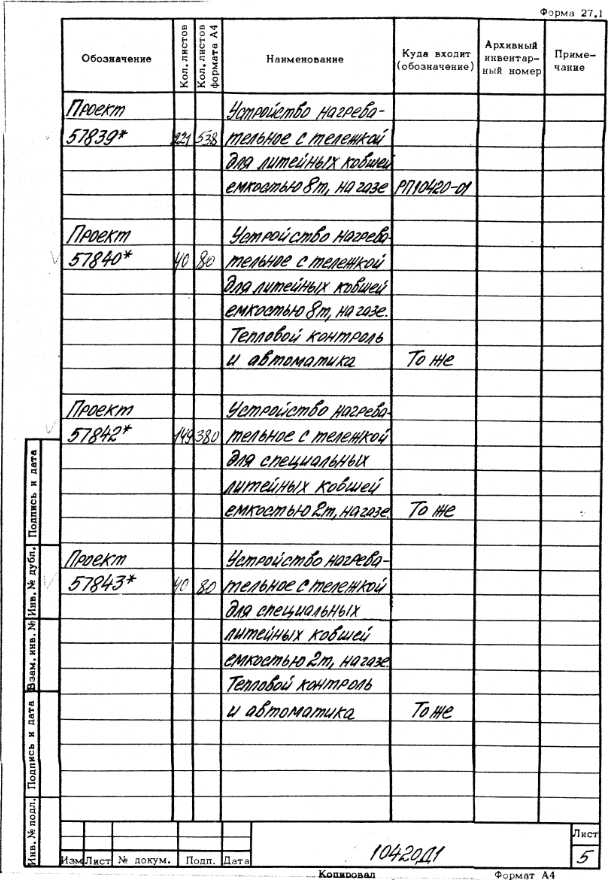 Форма 27.1
Обозначение
Кол. листов
Кол. листов
формата А4
Наименование
Куда входит
(обозначение)
Архивный
инвентар-
ный номер
Приме-
чание
Проект Устройство нагрева-
57839* 221 538 тельное с тележкой
для литейных ковшей
емкостью 8т, на газе РП10420-01
Проект Устройство нагрева-
57840* 40 80 тельное с тележкой
для литейных ковшей
емкостью 8т, на газе.
Тепловой контроль
и автоматика То же
Проект Устройство нагрева-
57842* 149 380 тельное с тележкой
для специальных
литейных ковшей
емкостью 2т, на газе. То же
Проект Устройство нагрева-
57843* 40 80 тельное с тележкой
для специальных
литейных ковшей
емкостью 2т, на газе.
Тепловой контроль
и автоматика То же
Подпись и дата
Инв. № дубл.
Взам. инв. №
Подпись и дата
Инв. № подл.
Изм Лист № докум. Подп. Дата
10420Д1
Лист
5
Копировал Формат А4